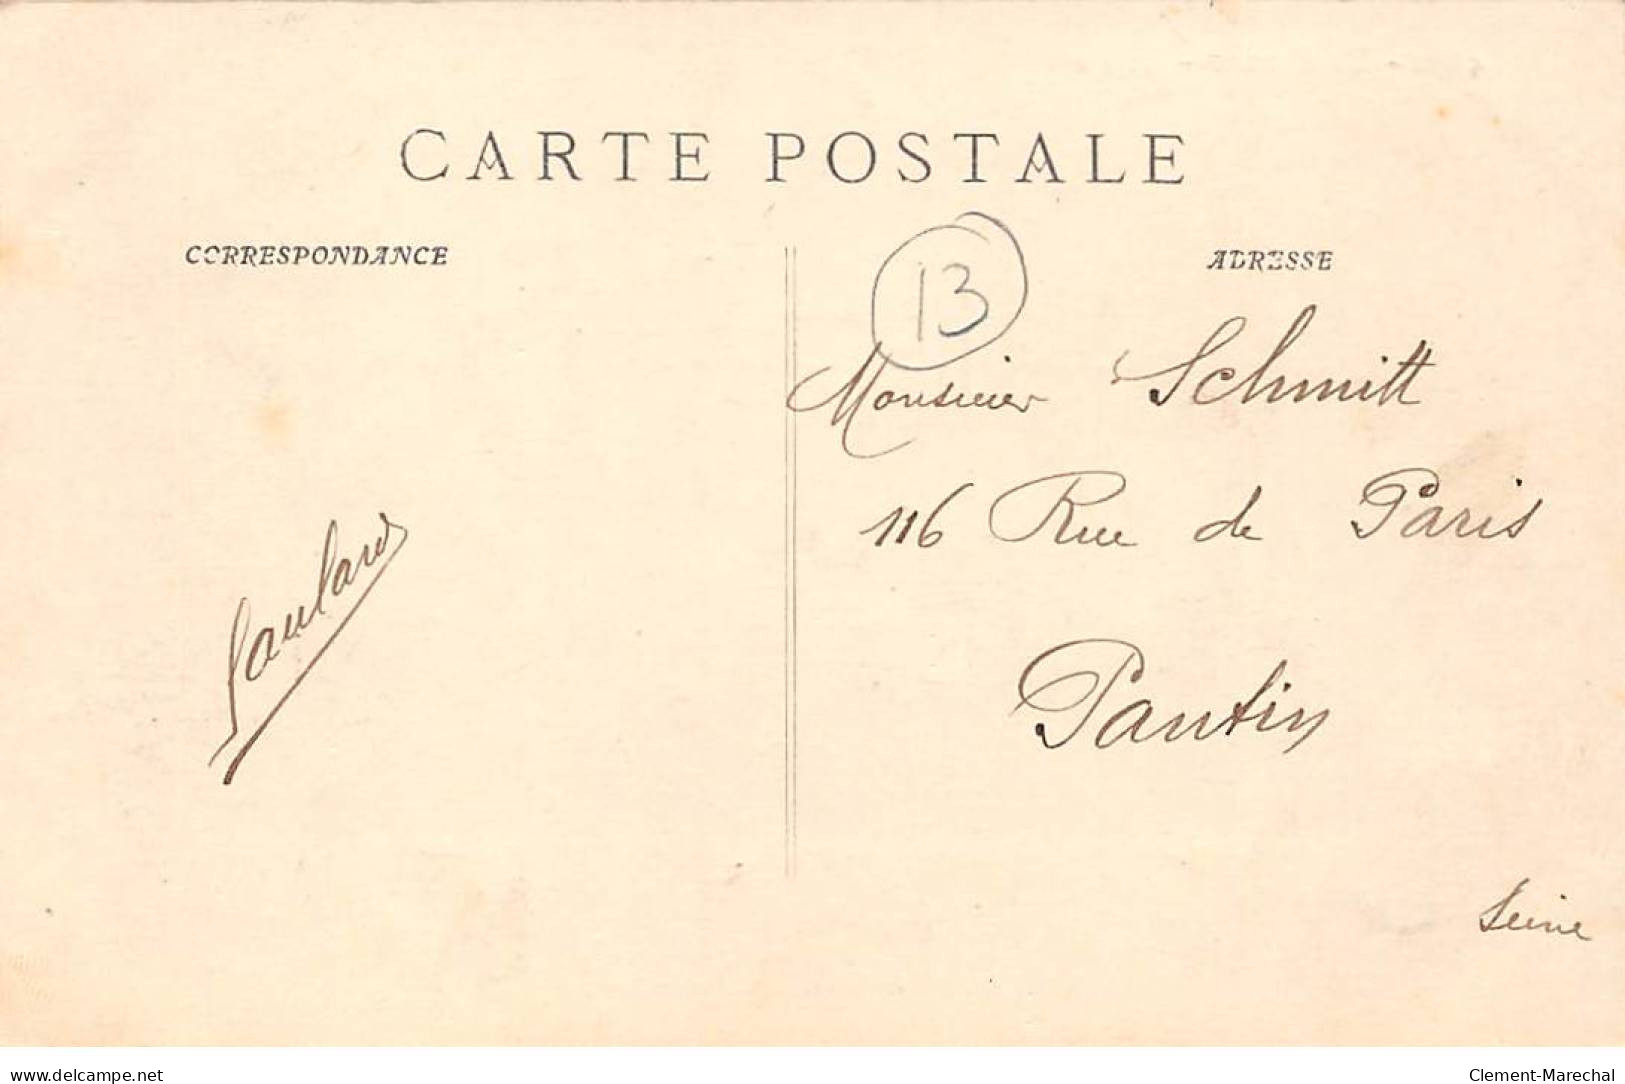 CARTE POSTALE
CORRESPONDANCE
ADRESSE
13
Monsieur Schmitt
116 Rue de Paris
Pantin
Seine
www.delcampe.net
Clement-Marechal